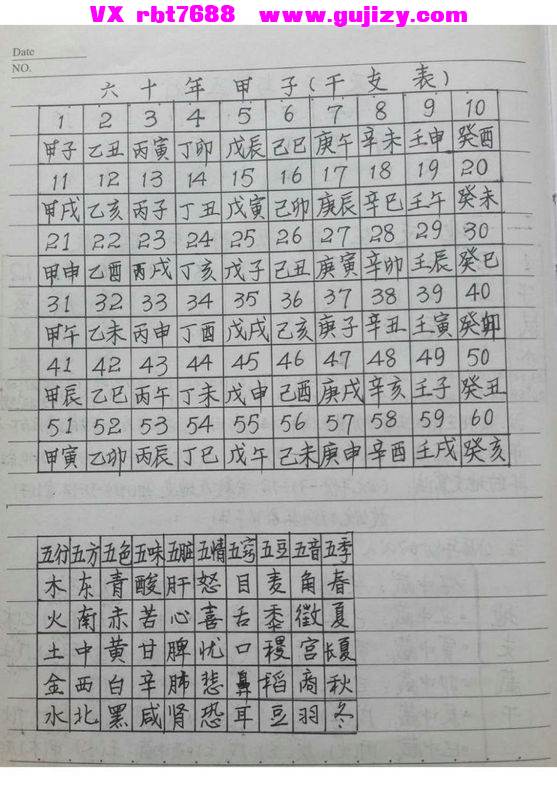 VX rbt7688 www.gujizy.com
Date
NO.
六十年甲子(干支表)
1 2 3 4 5 6 7 8 9 10
甲子 乙丑 丙寅 丁卯 戊辰 己巳 庚午 辛未 壬申 癸酉
11 12 13 14 15 16 17 18 19 20
甲戌 乙亥 丙子 丁丑 戊寅 己卯 庚辰 辛巳 壬午 癸未
21 22 23 24 25 26 27 28 29 30
甲申 乙酉 丙戌 丁亥 戊子 己丑 庚寅 辛卯 壬辰 癸巳
31 32 33 34 35 36 37 38 39 40
甲午 乙未 丙申 丁酉 戊戌 己亥 庚子 辛丑 壬寅 癸卯
41 42 43 44 45 46 47 48 49 50
甲辰 乙巳 丙午 丁未 戊申 己酉 庚戌 辛亥 壬子 癸丑
51 52 53 54 55 56 57 58 59 60
甲寅 乙卯 丙辰 丁巳 戊午 己未 庚申 辛酉 壬戌 癸亥
五行 五方 五色 五味 五脏 五情 五窍 五豆 五音 五季
木 东 青 酸 肝 怒 目 麦 角 春
火 南 赤 苦 心 喜 舌 黍 徵 夏
土 中 黄 甘 脾 忧 口 稷 宫 长夏
金 西 白 辛 肺 悲 鼻 稻 商 秋
水 北 黑 咸 肾 恐 耳 豆 羽 冬